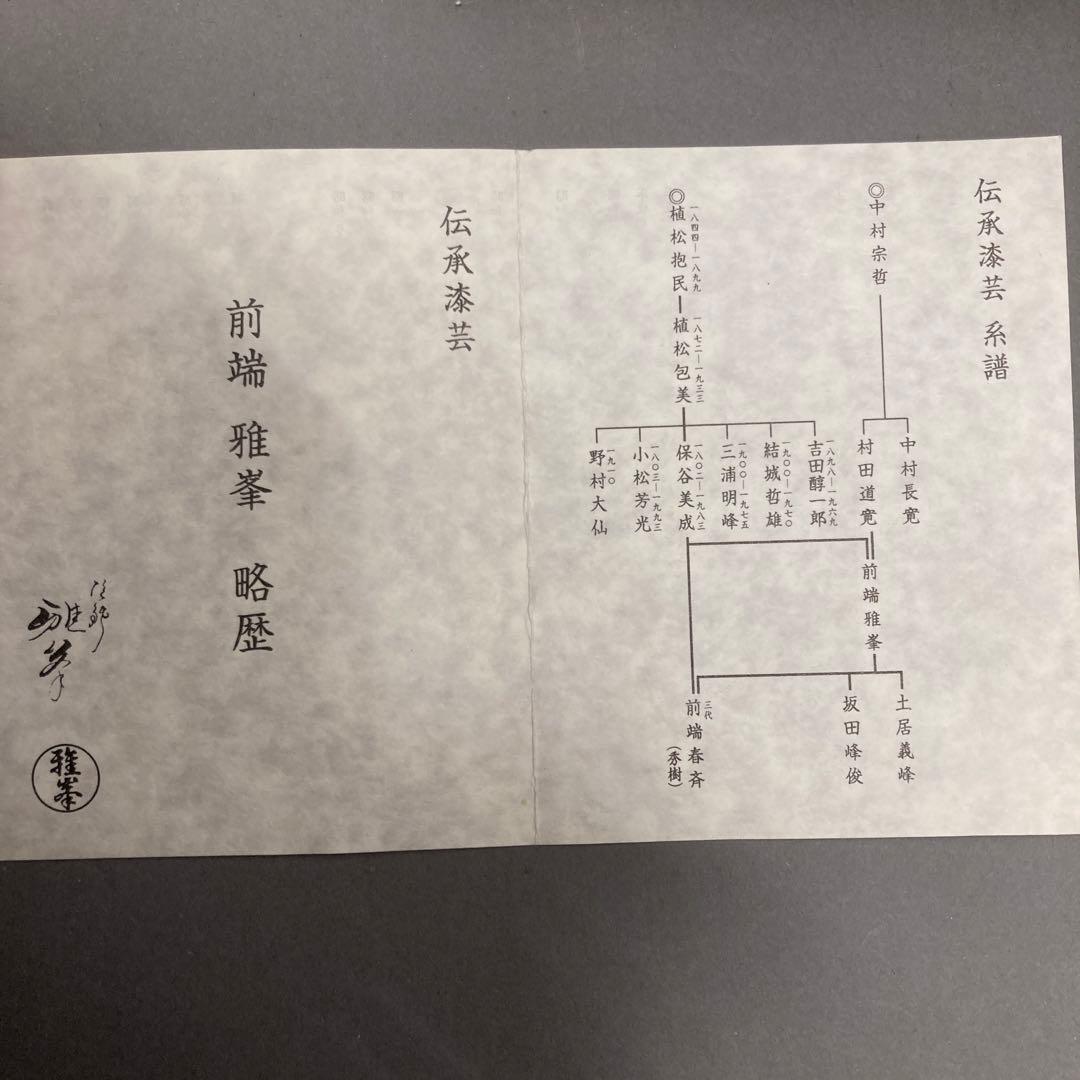 伝承漆芸 系譜
◎中村宗哲
中村長寛
村田道寛
前端雅峯
土居義峰
坂田峰俊
三代
前端春斉
(秀樹)
一八四四―一八九九
◎植松抱民
一八七二―一九三三
植松包美
一八九八―一九六九
吉田醇一郎
一九〇〇―一九七〇
結城哲雄
一九〇〇―一九七五
三浦明峰
一八〇二―一九八三
保谷美成
一八〇三―一九九三
小松芳光
一九一〇
野村大仙
伝承漆芸
前端 雅峯 略歴
雅峯
雅峯